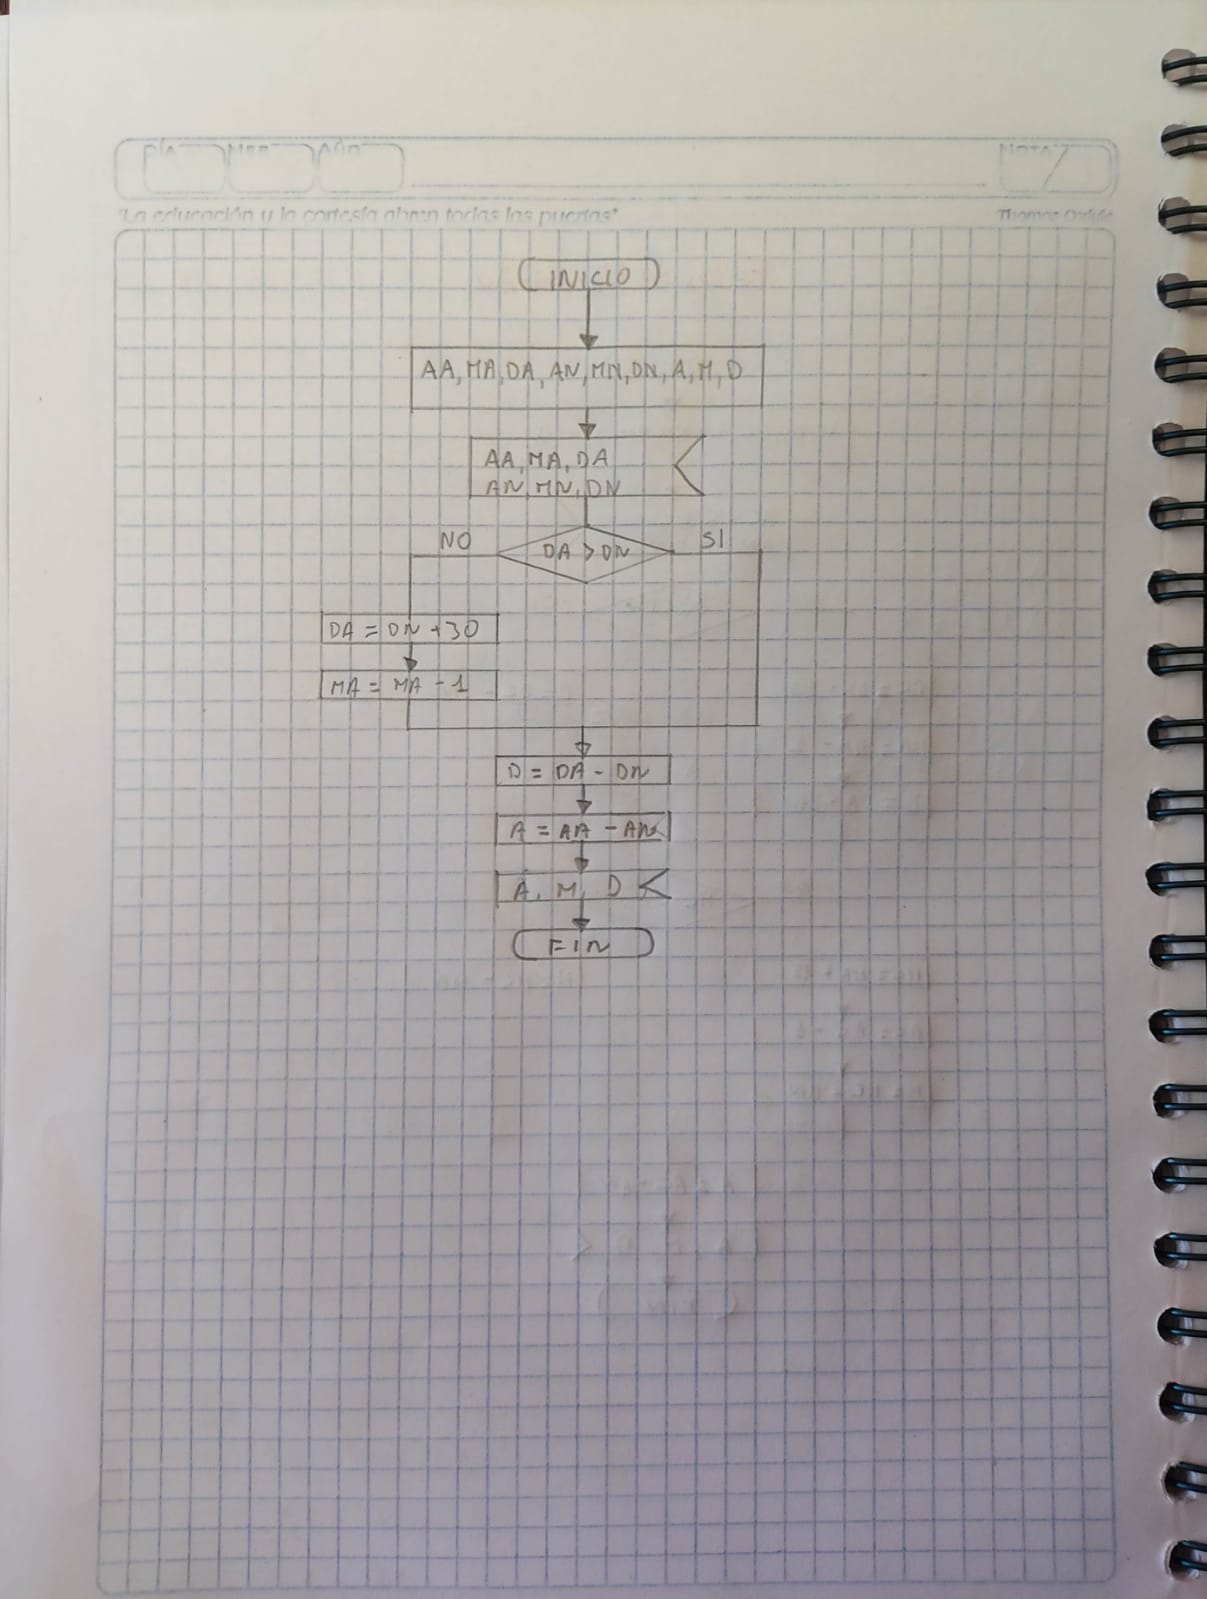 DÍA MES AÑO NOTA
"La educación y la cortesía abren todas las puertas" Thomas
INICIO
AA, MA, DA, AN, MN, DN, A, M, D
AA, MA, DA
AN, MN, DN
NO DA > DN SI
DA = DN + 30
MA = MA - 1
D = DA - DN
A = AA - AN
A, M, D
FIN